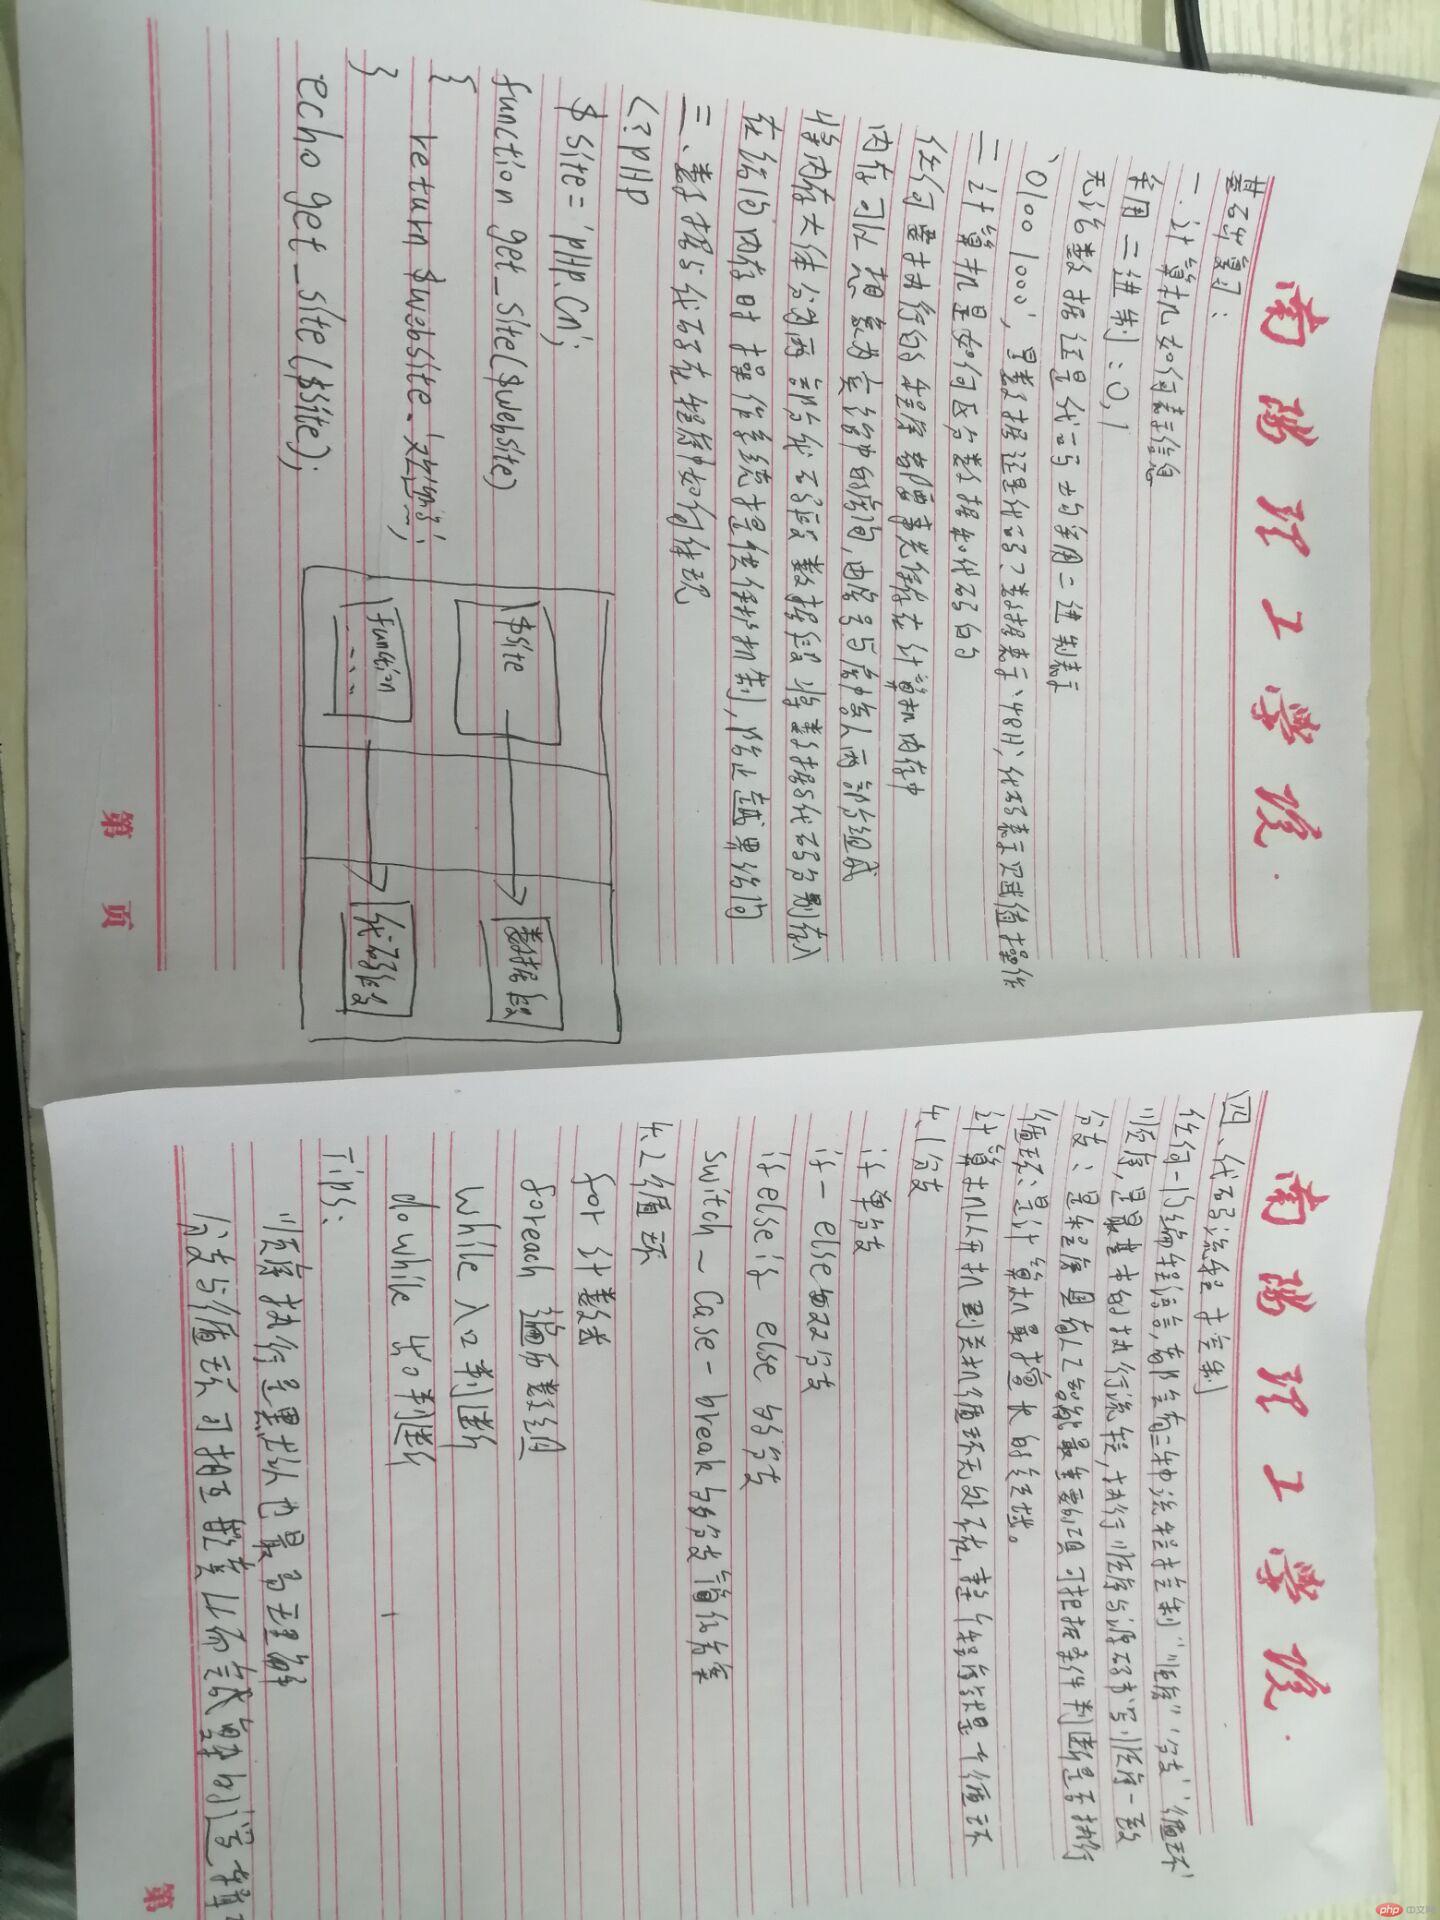 南瑞理工学校
基础复习:
一.计算机如何表示信息
采用二进制:0,1
无论数据还是代码均采用二进制表示
'0100 1000',是数据还是代码?数据表示'48H',代码表示赋值操作
二 计算机是如何区分数据和代码的
任何要执行的程序都要事先保存在计算机内存中
内存可以想象为宾馆中的房间,由房号与房中客人两部分组成
将内存大体分为两部分代码段数据段 将数据与代码分别存入
在访问内存时操作系统提供保护机制,防止越界访问
三、数据与代码在程序中如何体现
<?PHP
$site='PHP.Cn';
function get_site($website)
{
return $website.'文网';
}
echo get_site($site);
$site
数据段
function
...
代码段
第 页
南瑞理工学校
四、代码流程控制
任何一门编程语言,都会有三种流程控制"顺序"'分支''循环'
顺序,是最基本的执行流程,执行顺序与源码书写顺序一致
分支:是程序具有人工智能最重要的一项 可根据条件判断是否执行
循环:是计算机最擅长的领域。
计算机从开机到关机循环无处不在,整个程序就是一个循环
4.1分支
if 单分支
if-else 双分支
if elseif else 多分支
switch~Case-break多分支简化方案
4.2循环
for 计数式
foreach 遍历数组
while 入口判断
do while 出口判断
Tips:
顺序执行是默认也最易理解
分支与循环可相互嵌套
第
php 中文网